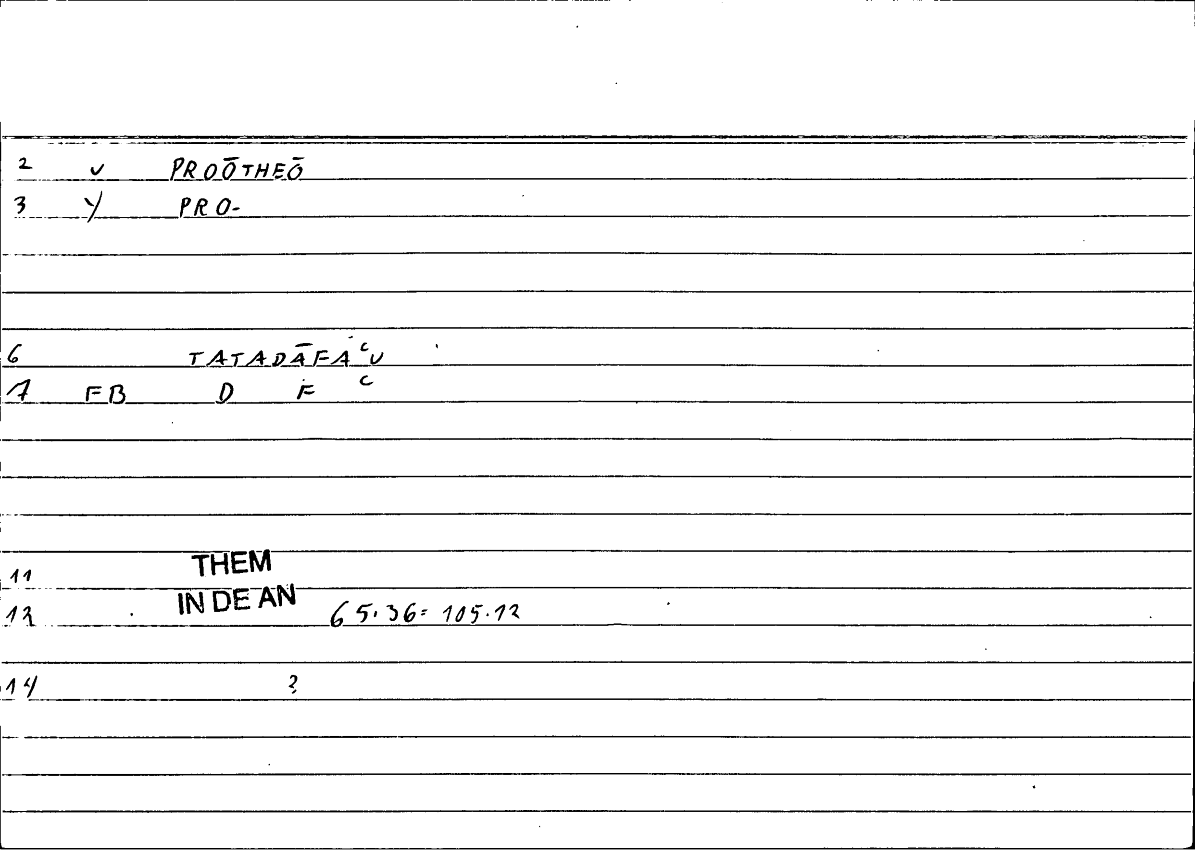 2 υ PROŌTHEŌ
3 Y PRO-
6 TATADĀFAᶜU
7 FB D Ḟ ᶜ
11 THEM
12 IN DE AN 65.36=105.12
14 ?